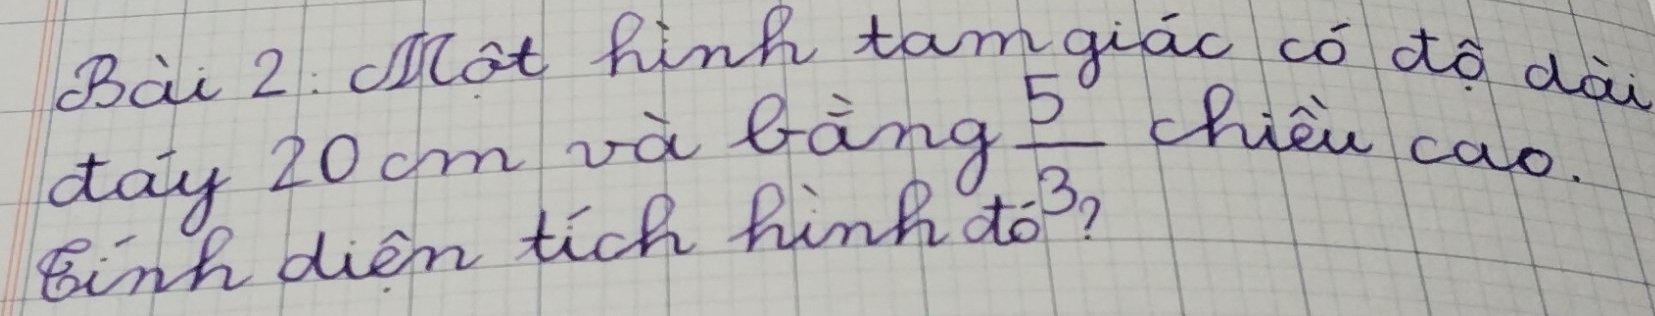 Bài 2: Một hình tam giác có độ dài
đáy 20 cm và bằng 5/3 chiều cao.
Tính diện tích hình đó?